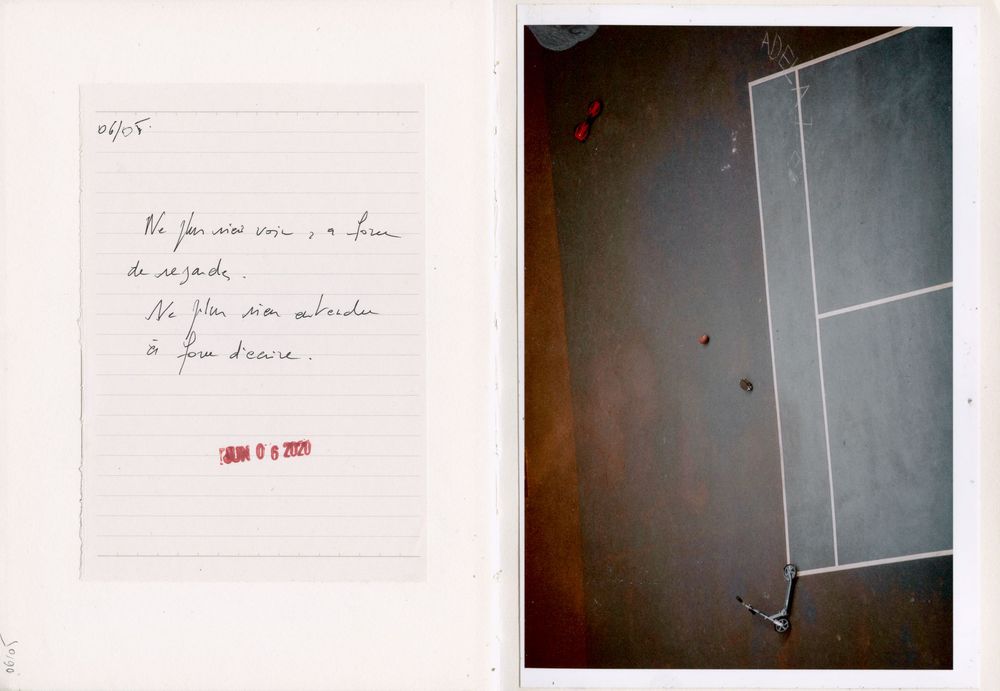 06/05.
Ne plus rien voir, a force
de regards.
Ne plus rien entendre
à force d'écrire.
JUN 06 2020
06/05
ADEL